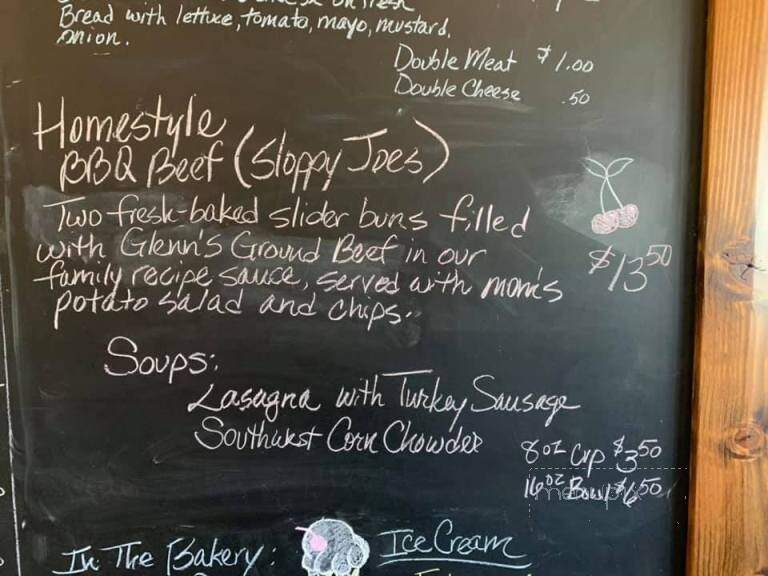 on fresh
Bread with lettuce, tomato, mayo, mustard,
onion.
Double Meat $1.00
Double Cheese .50
Homestyle
BBQ Beef (Sloppy Joes)
Two fresh-baked slider buns filled
with Glenn's Ground Beef in our
family recipe sauce, served with mom's
potato salad and chips.
$13.50
Soups:
Lasagna with Turkey Sausage
Southwest Corn Chowder
8oz Cup $3.50
16oz Bowl $6.50
In The Bakery:
Ice Cream